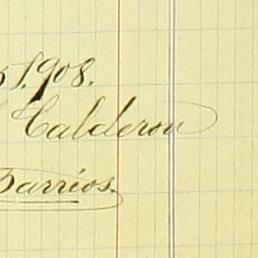 1908.
Calderon
Barrios.